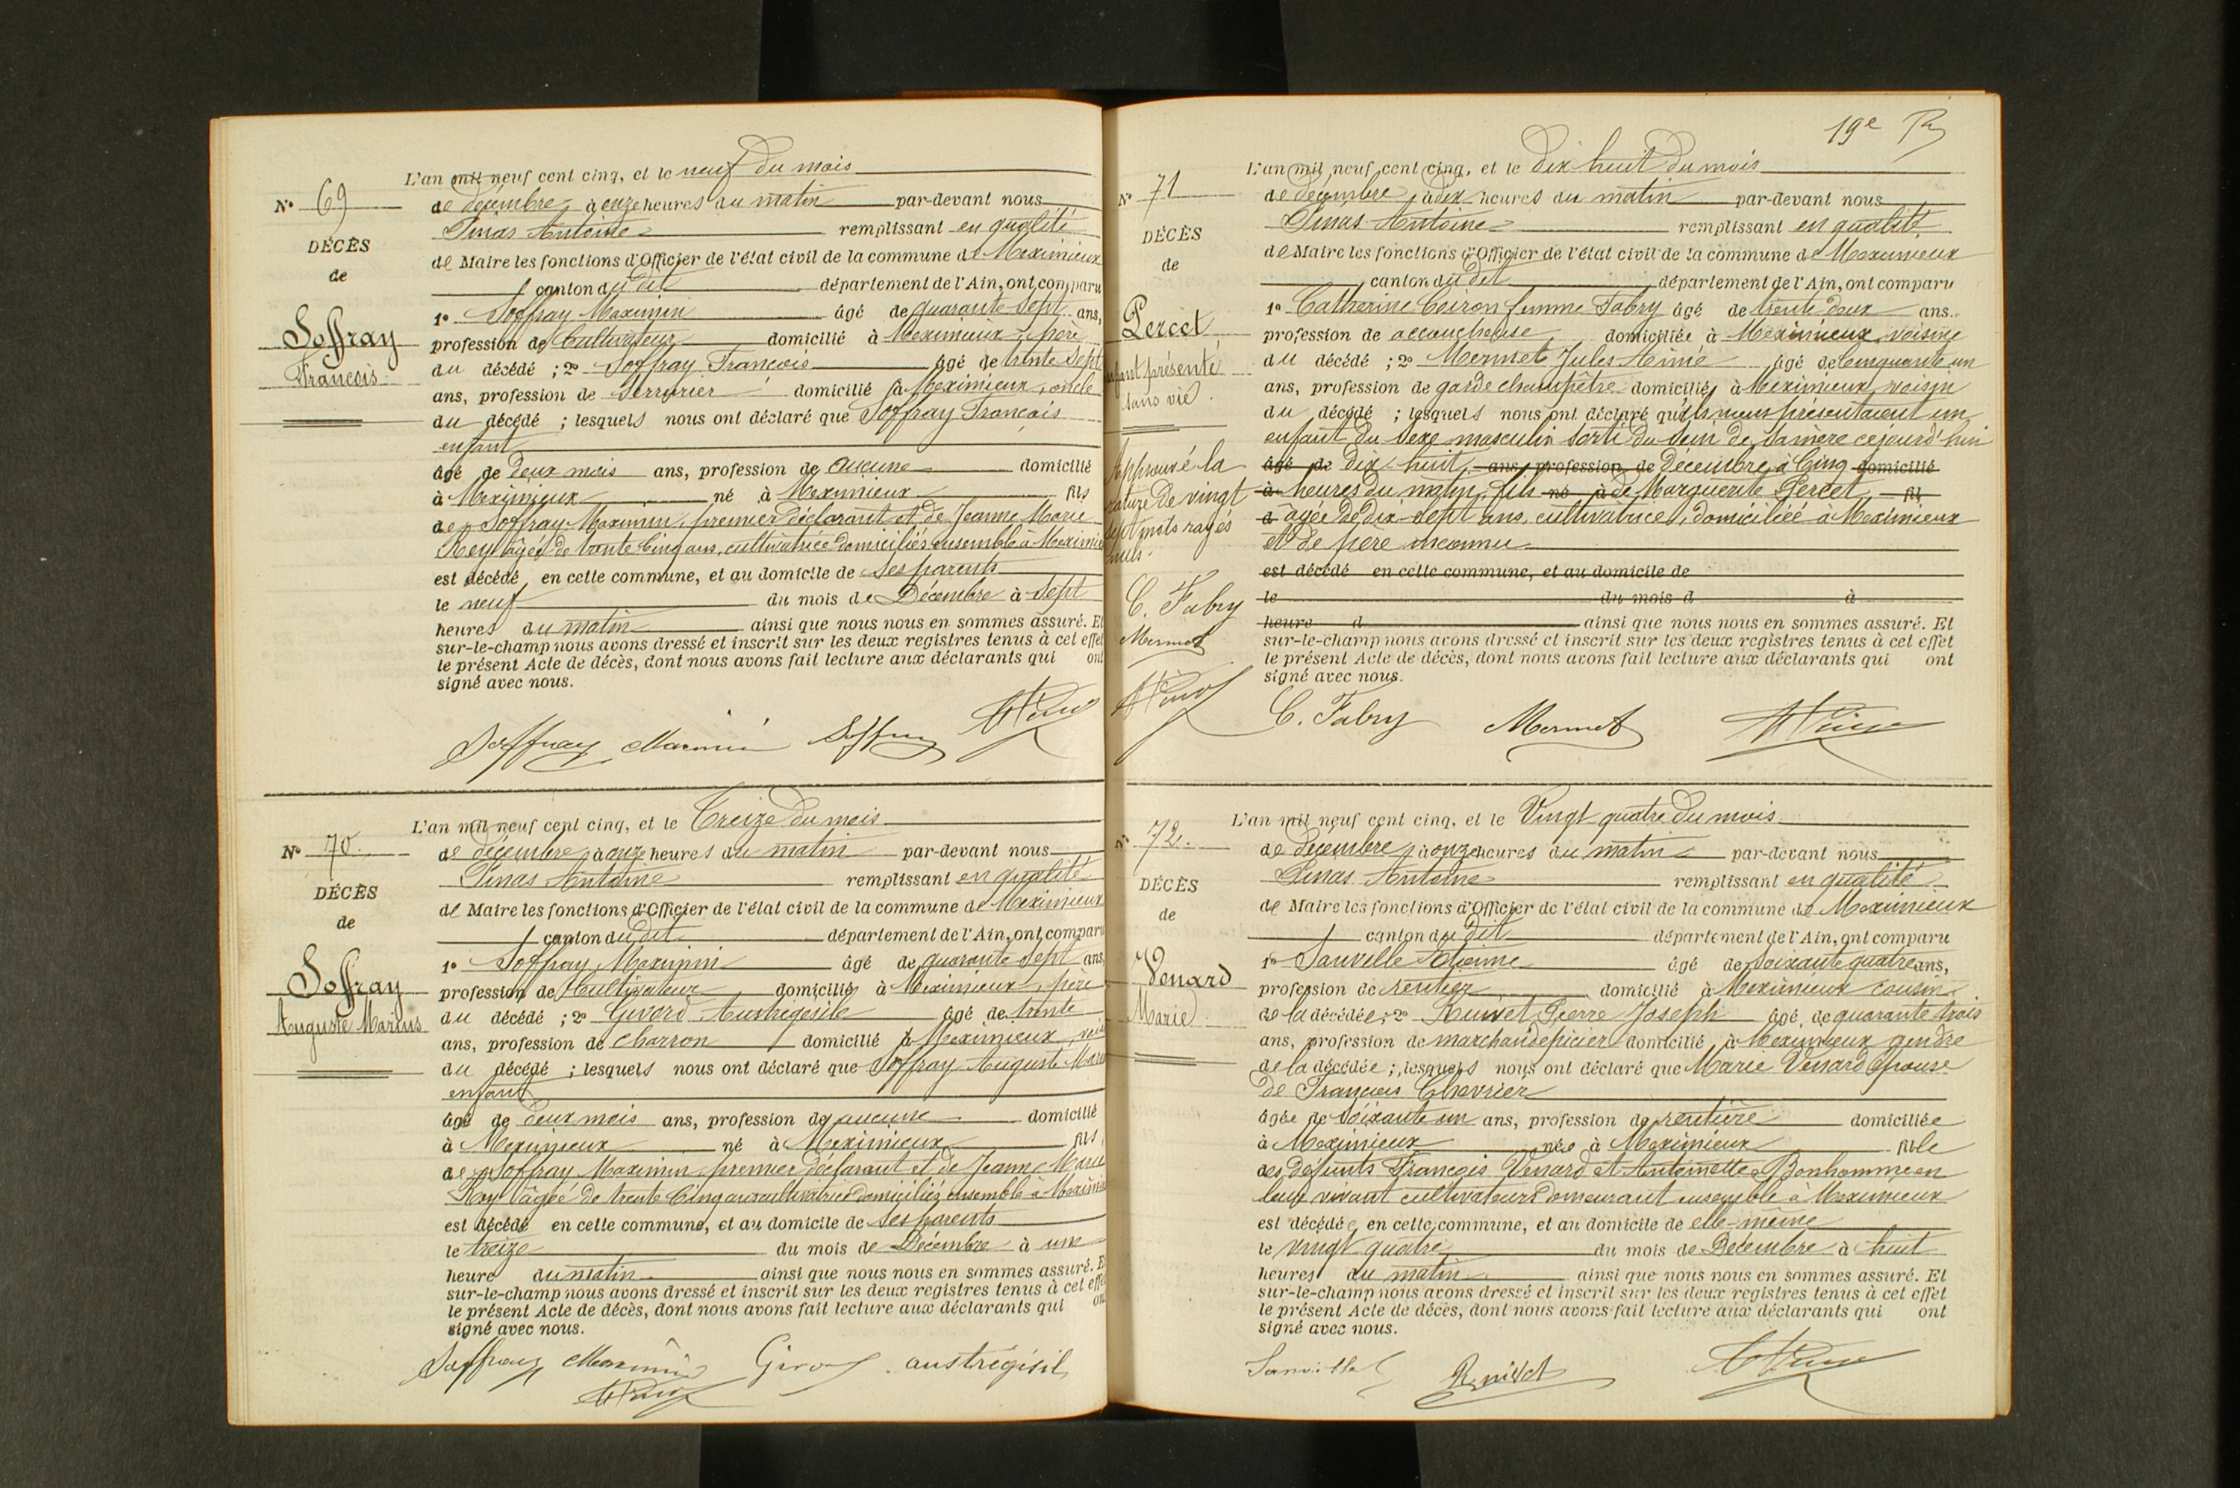 L'an mil neuf cent cinq, et le neuf du mois
N° 69
de décembre, à onze heures du matin par-devant nous
Pinas Antoine remplissant en qualité
DÉCÈS
de Maire les fonctions d'Officier de l'état civil de la commune de Meximieux
de
canton du dit département de l'Ain, ont comparu
1° Soffray Maximin âgé de quarante sept ans,
Soffray
François
profession de Cultivateur domicilié à Meximieux, père
du décédé ; 2° Soffray François âgé de trente sept
ans, profession de Serrurier domicilié à Meximieux, oncle
du décédé ; lesquels nous ont déclaré que Soffray François
enfant
âgé de deux mois ans, profession de aucune domicilié
à Meximieux né à Meximieux fils
de Soffray Maximin, premier déclarant et de Jeanne Marie
Rey âgée de trente cinq ans, cultivatrice domiciliés ensemble à Meximieux
est décédé en cette commune, et au domicile de ses parents
le neuf du mois de Décembre à sept
heures du matin ainsi que nous nous en sommes assuré. Et
sur-le-champ nous avons dressé et inscrit sur les deux registres tenus à cet effet
le présent Acte de décès, dont nous avons fait lecture aux déclarants qui ont
signé avec nous.
Soffray Maximin Soffray
L'an mil neuf cent cinq, et le Treize du mois
N° 70
de décembre, à onze heures du matin par-devant nous
Pinas Antoine remplissant en qualité
DÉCÈS
de Maire les fonctions d'Officier de l'état civil de la commune de Meximieux
de
canton du dit département de l'Ain, ont comparu
1° Soffray Maximin âgé de quarante sept ans,
Soffray
Auguste Marius
profession de Cultivateur domicilié à Meximieux, père
du décédé ; 2° Givord Austrégésile âgé de trente
ans, profession de charron domicilié à Meximieux,
du décédé ; lesquels nous ont déclaré que Soffray Auguste
enfant
âgé de deux mois ans, profession de aucune domicilié
à Meximieux né à Meximieux fils
de Soffray Maximin, premier déclarant et de Jeanne Marie
Rey âgée de trente cinq ans cultivatrice domiciliés ensemble à Meximieux
est décédé en cette commune, et au domicile de ses parents
le treize du mois de Décembre à une
heure du matin ainsi que nous nous en sommes assuré. Et
sur-le-champ nous avons dressé et inscrit sur les deux registres tenus à cet effet
le présent Acte de décès, dont nous avons fait lecture aux déclarants qui ont
signé avec nous.
Soffray Maximin Givord austrégisil
19e
L'an mil neuf cent cinq, et le dix huit du mois
N° 71
de décembre, à dix heures du matin par-devant nous
Pinas Antoine remplissant en qualité
DÉCÈS
de Maire les fonctions d'Officier de l'état civil de la commune de Meximieux
de
canton du dit département de l'Ain, ont comparu
1° Catherine Coiron femme Fabry âgé de trente deux ans.
Percet
enfant présenté
sans vie.
profession de accoucheuse domiciliée à Meximieux, voisine
du décédé ; 2° Mermet Jules Aimé âgé de Cinquante un
ans, profession de garde champêtre domicilié à Meximieux, voisin
du décédé ; lesquels nous ont déclaré qu'ils nous présentaient un
enfant du sexe masculin sorti du sein de sa mère cejourd'hui
Approuvé la
rature de vingt
sept mots rayés
nuls.
âgé de dix huit, ans, profession de décembre, à Cinq domicilié
à heures du matin, fils né à de Marguerite Percet, fil
d âgée de dix-sept ans, cultivatrice, domiciliée à Meximieux
et de père inconnu
est décédé en cette commune, et au domicile de
le du mois d à
heure d ainsi que nous nous en sommes assuré. Et
sur-le-champ nous avons dressé et inscrit sur les deux registres tenus à cet effet
le présent Acte de décès, dont nous avons fait lecture aux déclarants qui ont
signé avec nous.
C. Fabry
Mermet
C. Fabry Mermet
L'an mil neuf cent cinq, et le Vingt quatre du mois
N° 72.
de décembre, à onze heures du matin par-devant nous
Pinas Antoine remplissant en qualité
DÉCÈS
de Maire les fonctions d'Officier de l'état civil de la commune de Meximieux
de
canton du dit département de l'Ain, ont comparu
1° Sauvelle âgé de soixante quatre ans,
Venard
Marie.
profession de rentier domicilié à Meximieux cousin
de la décédée ; 2° Ruivet Pierre Joseph âgé de quarante trois
ans, profession de marchand épicier domicilié à Meximieux gendre
de la décédée ; lesquels nous ont déclaré que Marie Venard épouse
de François Chevrier
âgée de soixante un ans, profession de rentière domiciliée
à Meximieux née à Meximieux fille
des défunts François Venard et Antoinette Bonhomme en
leur vivant cultivateurs demeurant ensemble à Meximieux
est décédée en cette commune, et au domicile de elle-même
le vingt quatre du mois de Décembre à huit
heures du matin ainsi que nous nous en sommes assuré. Et
sur-le-champ nous avons dressé et inscrit sur les deux registres tenus à cet effet
le présent Acte de décès, dont nous avons fait lecture aux déclarants qui ont
signé avec nous.
Ruivet